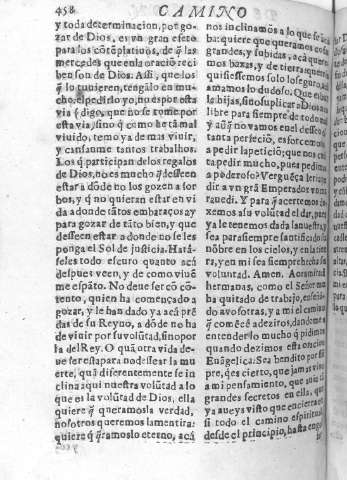 458
CAMINO
y toda determinacion, por go-
zar de Dios, es vn gran efeto
para los cōtēplatiuos, de q̃ las
mercedes que en la oraciō reci
ben son de Dios. Assi, que los
q̃ lo tuuieren, tengālo en mu-
cho, el pedirlo yo, no es por esta
via (digo, que no se tome por
esta via) sino q̃ como he tā mal
viuido, temo ya de mas viuir,
y cansanme tantos trabajos.
Los q̃ participan de los regalos
de Dios, no es mucho q̃ desseen
estar a dōde no los gozen a sor
bos, y q̃ no quieran estar en vi
da a donde tātos embaraços ay
para gozar de tāto bien, y que
desseen estar a donde no se les
ponga el Sol de justicia. Hará-
seles todo escuro quanto acá
despues veen, y de como viuē
me espāto. No deue ser cō cō-
tento, quien ha començado a
gozar, y le han dado ya acá prē
das de su Reyno, a dōde no ha
de viuir por su volūtad, sino por
la del Rey. O quā otra vida de-
ue ser esta para no dessear la mu
erte, quā diferentemente se in
clina aqui nuestra volūtad a lo
que es la volūtad de Dios, ella
quiere q̃ queramos la verdad,
nosotros queremos la mentira:
quiere q̃ q̃ramos lo eterno, acá
nos inclinamos a lo que se aca
ba: quiere que queramos cosas
grandes, y subidas, acá quere-
mos baxas, y de tierra: querría
quisiessemos solo lo seguro, acá
amamos lo dudoso. Que burla
es hijas, sino suplicar a Dios nos
libre para siempre de todo mal
y aūq̃ no vamos en el desseo cō
tanta perfeciō, esforcemonos
a pedir la peticiō; que nos cues
ta pedir mucho, pues pedimos
a poderoso? Verguēça seria pe-
dir a vn grā Emperador vn ma
rauedi. Y para q̃ acertemos de
xemos a su volūtad el dar, pues
ya le tenemos dada la nuestra, y
sea para siempre santificado su
nōbre en los cielos, y en la tier
ra, y en mi sea siempre hecha su
voluntad. Amen. Aora mirad
hermanas, como el Señor me
ha quitado de trabajo, enseñā-
do a vosotras, y a mi el camino
q̃ comēcé a deziros, dandome a
entender lo mucho q̃ pidimos
quando dezimos esta oracion
Euāgelica. Sea bendito por siē
pre, q̃ es cierto, que jamas vino
a mi pensamiento, que auia tā
grandes secretos en ella, que
ya aueys visto que encierra en
si todo el camino espiritual,
desde el principio, hasta engol